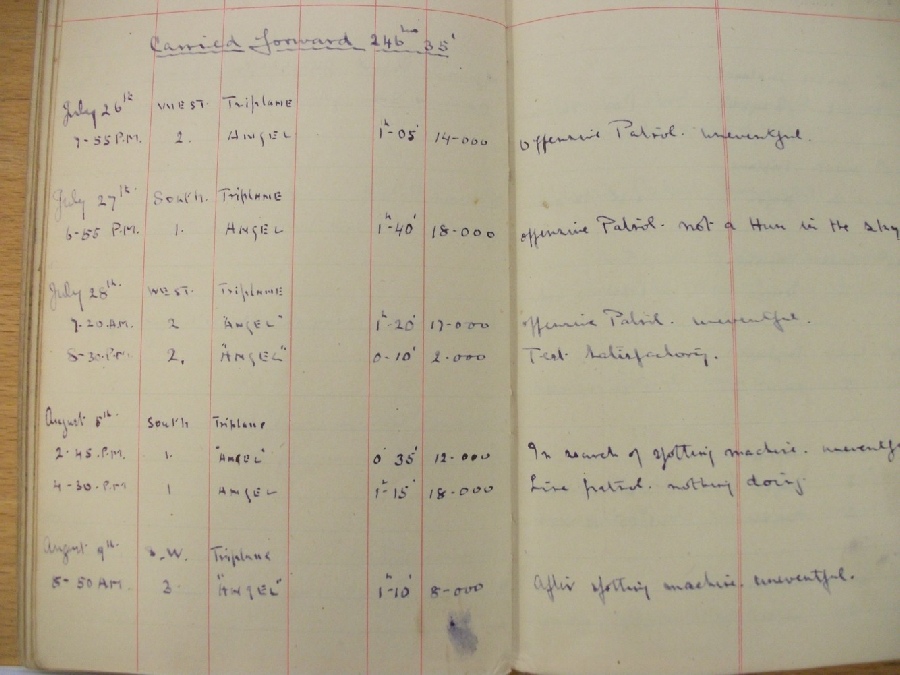 Carried forward 246 hrs 35'
July 26th West. Triplane
7-55 P.M. 2. ANGEL 1h-05' 14-000 Offensive Patrol. uneventful.
July 27th South. Triplane
6-55 P.M. 1. ANGEL 1h-40' 18-000 offensive Patrol. not a Hun in the sky
July 28th. WEST. Triplane
9-20 A.M. 2 "ANGEL" 1h-20' 17-000 offensive Patrol. uneventful.
8-30 P.M. 2, "ANGEL" 0-10' 2.000 Test satisfactory.
August 5th. South Triplane
2-45. P.M. 1. "ANGEL" 0 35' 12-000 In search of spotting machine. uneventf
4-30. P.M 1 ANGEL 1h-15' 18-000 Line patrol. nothing doing
August 9th. W. Triplane
8-50 AM. 3. "ANGEL" 1h-10' 8-000 After spotting machine. uneventful.